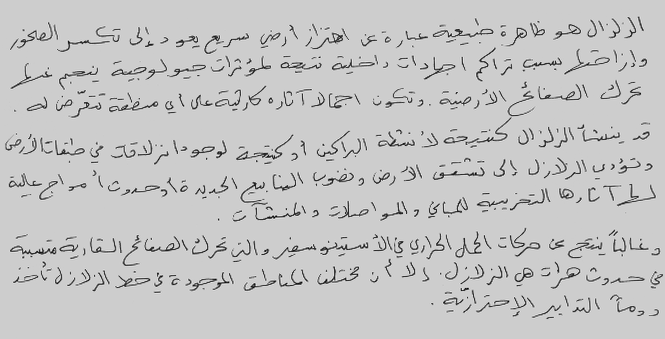 الزلزال هو ظاهرة طبيعية عبارة عن اهتزاز أرضي سريع يعود إلى تكسر الصخور
وإزاحتها بسبب تراكم اجهادات داخلية نتيجة لمؤثرات جيولوجية ينجم عنها
تحرك الصفائح الأرضية. وتكون اجمالا آثاره كارثية على أي منطقة تتعرّض له.
قد ينشأ الزلزال كنتيجة لأنشطة البراكين أو كنتيجة لوجود انزلاقات في طبقات الأرض
وتؤدي الزلازل إلى تشقق الأرض ونضوب الينابيع الجديدة أو حدوث أمواج عالية
آثارها التخريبية للمباني والمواصلات والمنشآت.
وغالباً ينتج عن حركات الحمل الحراري في الأستينوسفير والتي تحرك الصفائح القارية متسببة
في حدوث هزات هي الزلازل. إلا أن مختلف المناطق الموجودة في خط الزلازل تأخذ
دوماً التدابير الإحترازيّة.